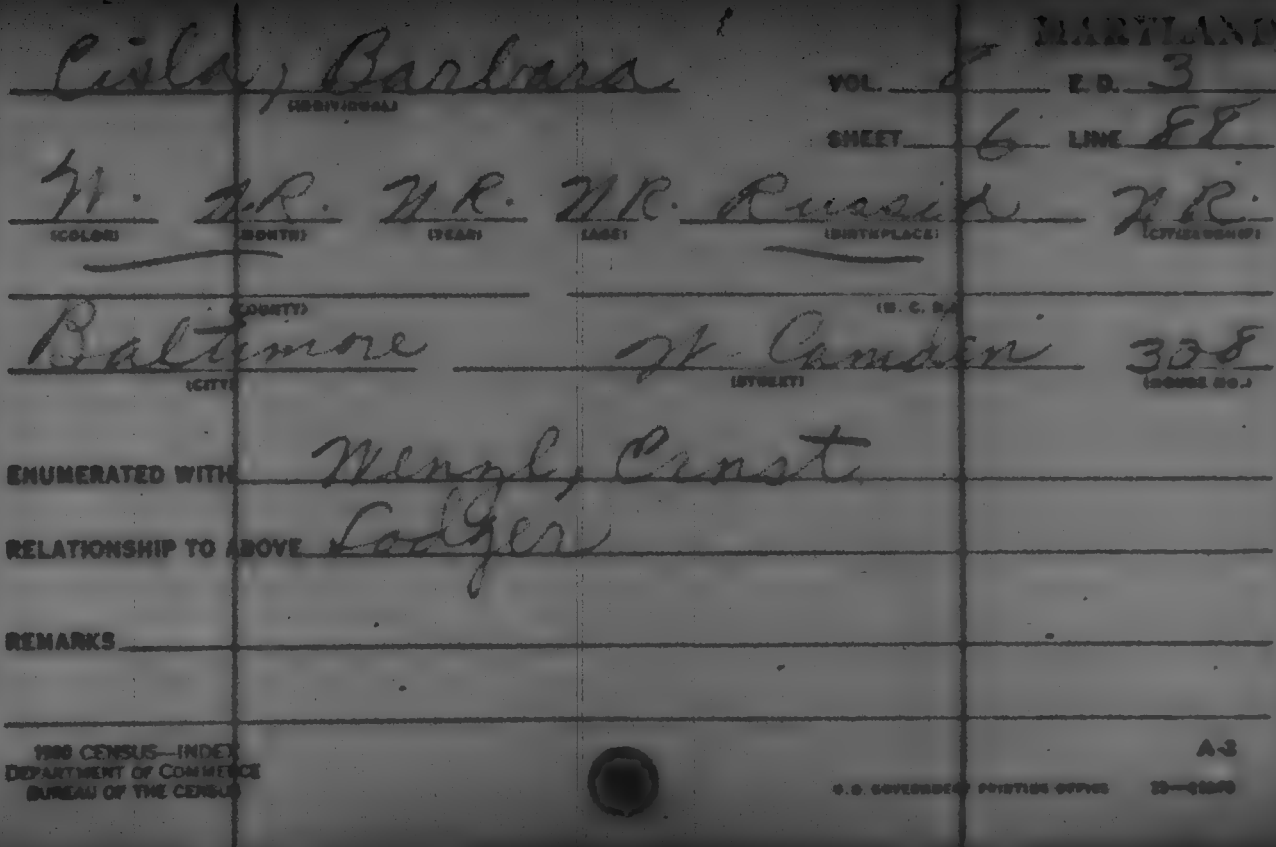 MARYLAND
Cisla, Barbara VOL. 8 E. D. 3
(INDIVIDUAL)
SHEET 6 LINE 88
W. N.R. N.R. N.R. Russia N.R.
(COLOR) (MONTH) (YEAR) (AGE) (BIRTHPLACE) (CITIZENSHIP)
(COUNTY) (M. C. D.)
Baltimore W. Camden 308
(CITY) (STREET) (HOUSE NO.)
ENUMERATED WITH Wenzl, Ernst
RELATIONSHIP TO ABOVE Lodger
REMARKS
1900 CENSUS—INDEX A-3
DEPARTMENT OF COMMERCE
BUREAU OF THE CENSUS U.S. GOVERNMENT PRINTING OFFICE